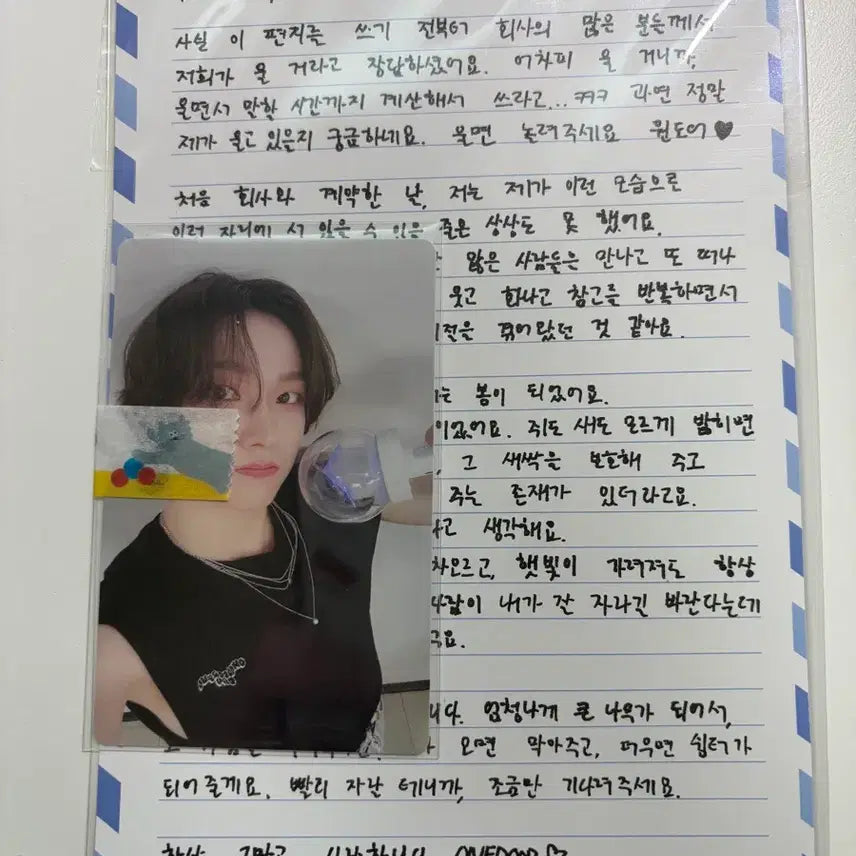 사실 이 편지를 쓰기 전부터 회사의 많은 분들께서
저희가 울 거라고 장담하셨어요. 어차피 울 거니까,
울면서 말할 시간까지 계산해서 쓰라고... ㅋㅋㅋ 과연 정말
제가 울고 있을지 궁금하네요. 울면 놀려주세요 원도어♥
처음 회사와 계약한 날, 저는 제가 이런 모습으로
이런 자리에 서 있을 수 있을 줄은 상상도 못 했어요.
않은 사람들을 만나고 또 떠나
웃고 화나고 참고를 반복하면서
겪어왔던 것 같아요.
봄이 되었어요.
이었어요. 쥐도 새도 모르게 밟히면
그 새싹을 보호해 주고
주는 존재가 있더라고요.
생각해요.
차오르고, 햇빛이 가려져도 항상
사람이 내가 잘 자라길 바란다는데
엄청나게 큰 나무가 되어서,
오면 막아주고, 더우면 쉼터가
되어 줄게요. 빨리 자랄 테니까, 조금만 기다려주세요.